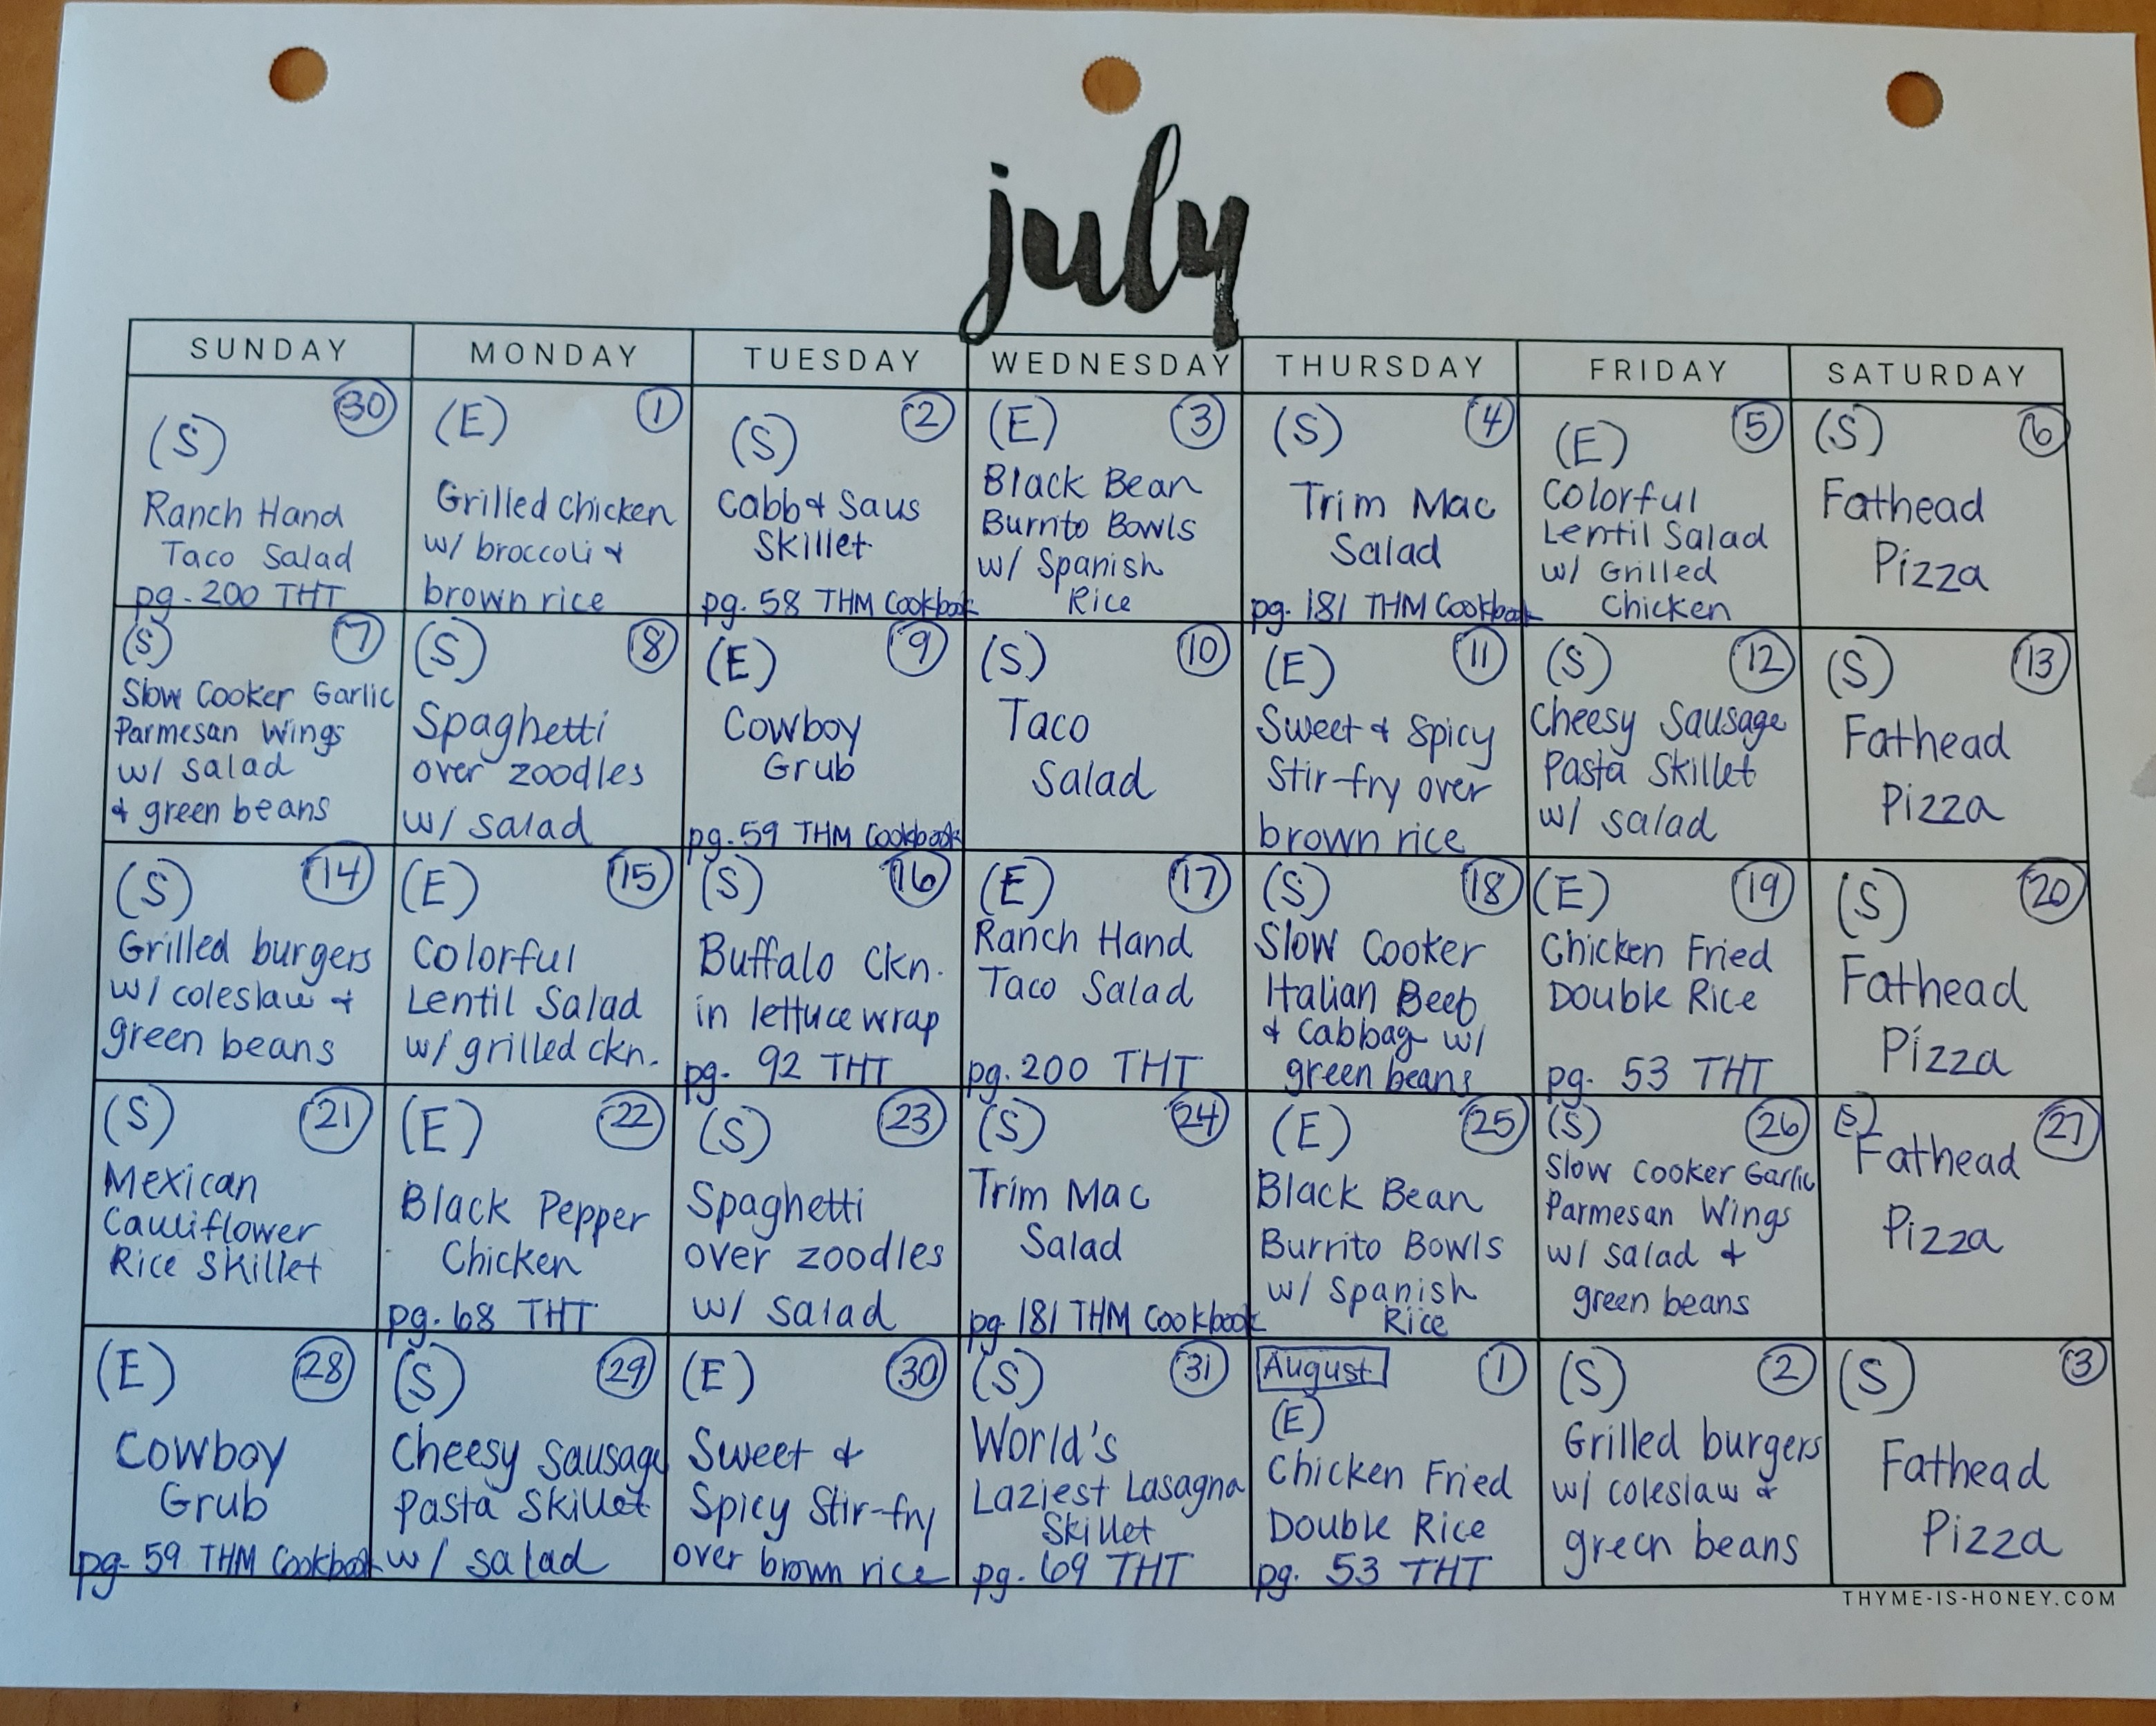 july
SUNDAY MONDAY TUESDAY WEDNESDAY THURSDAY FRIDAY SATURDAY
(S) 30
Ranch Hand
Taco Salad
pg. 200 THT
(E) 1
Grilled chicken
w/ broccoli &
brown rice
(S) 2
Cabb & Saus
Skillet
pg. 58 THM Cookbook
(E) 3
Black Bean
Burrito Bowls
w/ Spanish
Rice
(S) 4
Trim Mac
Salad
pg. 181 THM Cookbook
(E) 5
Colorful
Lentil Salad
w/ Grilled
Chicken
(S) 6
Fathead
Pizza
(S) 7
Slow Cooker Garlic
Parmesan Wings
w/ salad
& green beans
(S) 8
Spaghetti
over zoodles
w/ salad
(E) 9
Cowboy
Grub
pg. 59 THM Cookbook
(S) 10
Taco
Salad
(E) 11
Sweet & Spicy
Stir-fry over
brown rice
(S) 12
Cheesy Sausage
Pasta Skillet
w/ salad
(S) 13
Fathead
Pizza
(S) 14
Grilled burgers
w/ coleslaw &
green beans
(E) 15
Colorful
Lentil Salad
w/ grilled ckn.
(S) 16
Buffalo Ckn.
in lettuce wrap
pg. 92 THT
(E) 17
Ranch Hand
Taco Salad
pg. 200 THT
(S) 18
Slow Cooker
Italian Beef
& Cabbag w/
green beans
(E) 19
Chicken Fried
Double Rice
pg. 53 THT
(S) 20
Fathead
Pizza
(S) 21
Mexican
Cauliflower
Rice Skillet
(E) 22
Black Pepper
Chicken
pg. 68 THT
(S) 23
Spaghetti
over zoodles
w/ salad
(S) 24
Trim Mac
Salad
pg. 181 THM Cookbook
(E) 25
Black Bean
Burrito Bowls
w/ Spanish
Rice
(S) 26
Slow Cooker Garlic
Parmesan Wings
w/ salad &
green beans
(S) 27
Fathead
Pizza
(E) 28
Cowboy
Grub
pg. 59 THM Cookbook
(S) 29
Cheesy Sausage
Pasta Skillet
w/ salad
(E) 30
Sweet &
Spicy Stir-fry
over brown rice
(S) 31
World's
Laziest Lasagna
Skillet
pg. 69 THT
August 1
(E)
Chicken Fried
Double Rice
pg. 53 THT
(S) 2
Grilled burgers
w/ coleslaw &
green beans
(S) 3
Fathead
Pizza
THYME-IS-HONEY.COM